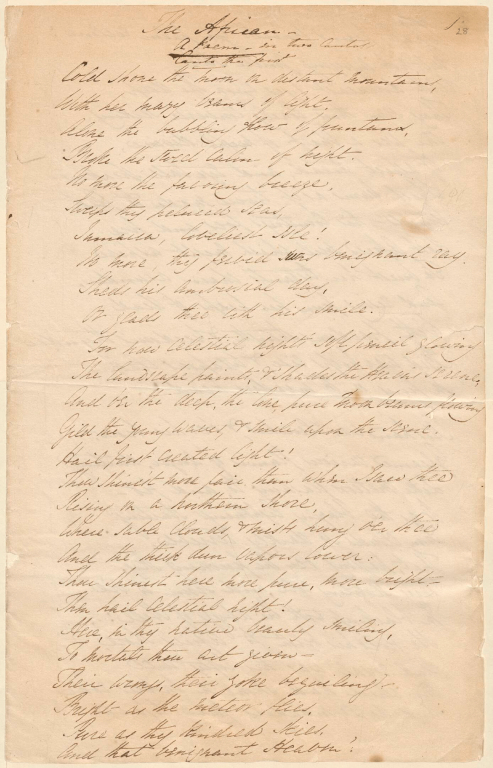 The African —
A Poem — in two Cantos
Canto the first
1.
28
Cold shone the moon on distant mountain,
With her mazy beams of light.
Alone the bubbling flow of fountains,
Broke the still calm of night.
No more the favoring breeze,
Sweeps thy palmed seas,
Jamaica, loveliest Isle!
No more thy fervid benignant ray.
Sheds his ambrosial day,
Or glads thee with his smile.
For now Celestial night soft pencil glowing
The landscape paints, & shades the Heavens serene,
And o'er the deep, the pure moon beams flowing
Gild the young waves, & smile upon the scene.
Hail first created light!
Thou shinest more fair than when I saw thee
Rising on a northern shore,
Where sable clouds, & mists hung o'er thee
And the thick dun vapors lower:
Thou shinest here more pure, more bright —
Then hail Celestial light!
Here, in thy native beauty smiling,
To mortals thou art given —
Their wrongs, their yoke beguiling —
Bright as the meteor flies,
Pure as thy kindred skies.
And that benignant Heaven!